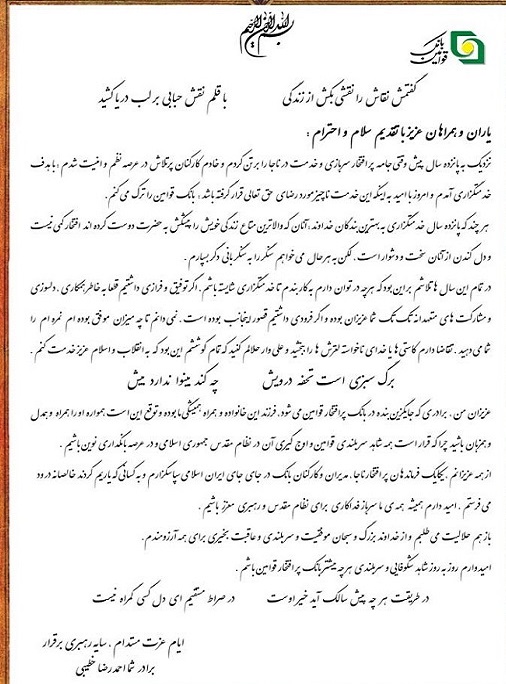 بسم الله الرحمن الرحیم
بانک قوامین
گفتمش نقاش را نقشی بکش از زندگی با قلم نقش حبابی بر لب دریا کشید
یاران و همراهان عزیز با تقدیم سلام و احترام :
نزدیک به پانزده سال پیش وقتی جامه پر افتخار سربازی و خدمت در ناجا را بر تن کردم و خادم کارکنان پرتلاش در عرصه نظم و امنیت شدم ؛ با هدف
خدمتگزاری آمدم و امروز با امید به اینکه این خدمت ناچیز مورد رضای حق تعالی قرار گرفته باشد ، بانک قوامین را ترک می کنم .
هر چند که پانزده سال خدمتگزاری به بهترین بندگان خداوند ، آنان که والاترین متاع زندگی خویش را پیشکش به حضرت دوست کرده اند افتخار کمی نیست
و دل کندن از آنان سخت و دشوار است . لکن به هر حال می خواهم سنگر را به سنگربانی دگر بسپارم .
در تمام این سال ها تلاشم بر این بود که هر چه در توان دارم به کار بندم تا خدمتگزاری شایسته باشم . اگر توفیق و فرازی داشتیم قطعا به خاطر همکاری ، دلسوزی
و مشارکت های متعهدانه تک تک شما عزیزان بوده و اگر فرودی داشتیم قصور اینجانب بوده است . نمی دانم تا چه میزان موفق بوده ام نمره ام را
شما می دهید . تقاضا دارم کاستی ها یا خدای ناخواسته لغزش ها را ببخشید و علی وار حلالم کنید که تمام کوششم این بود که به انقلاب و اسلام عزیز خدمت کنم .
برگ سبزی است تحفه درویش چه کند بینوا ندارد بیش
عزیزان من ، برادری که جایگزین بنده در بانک پر افتخار قوامین می شود . فرزند این خانواده و همراه همیشگی ما بوده و توقع این است همواره او را همراه و همدل
و همزبان باشید چرا که قرار است همه شاهد سربلندی قوامین و اوج گیری آن در نظام مقدس جمهوری اسلامی و در عرصه بانکداری نوین باشیم .
از همه عزیزانم ، یکایک فرماندهان پر افتخار ناجا ، مدیران و کارکنان بانک در جای جای ایران اسلامی سپاسگزارم و به کسانی که یاریم کردند خالصانه درود
می فرستم . امید دارم همیشه همه ی ما سرباز فداکاری برای نظام مقدس و رهبری معزز باشیم .
باز هم حلالیت می طلبم و از خداوند بزرگ و سبحان موفقیت و سربلندی و عاقبت بخیری برای همه آرزومندم .
امیدوارم روز به روز شاهد شکوفایی و سربلندی هر چه بیشتر بانک پر افتخار قوامین باشم .
در طریقت هر چه پیش سالک آید خیر اوست در صراط مستقیم ای دل کسی گمراه نیست
ایام عزت مستدام ، سایه رهبری برقرار
برادر شما احمد رضا خطیبی